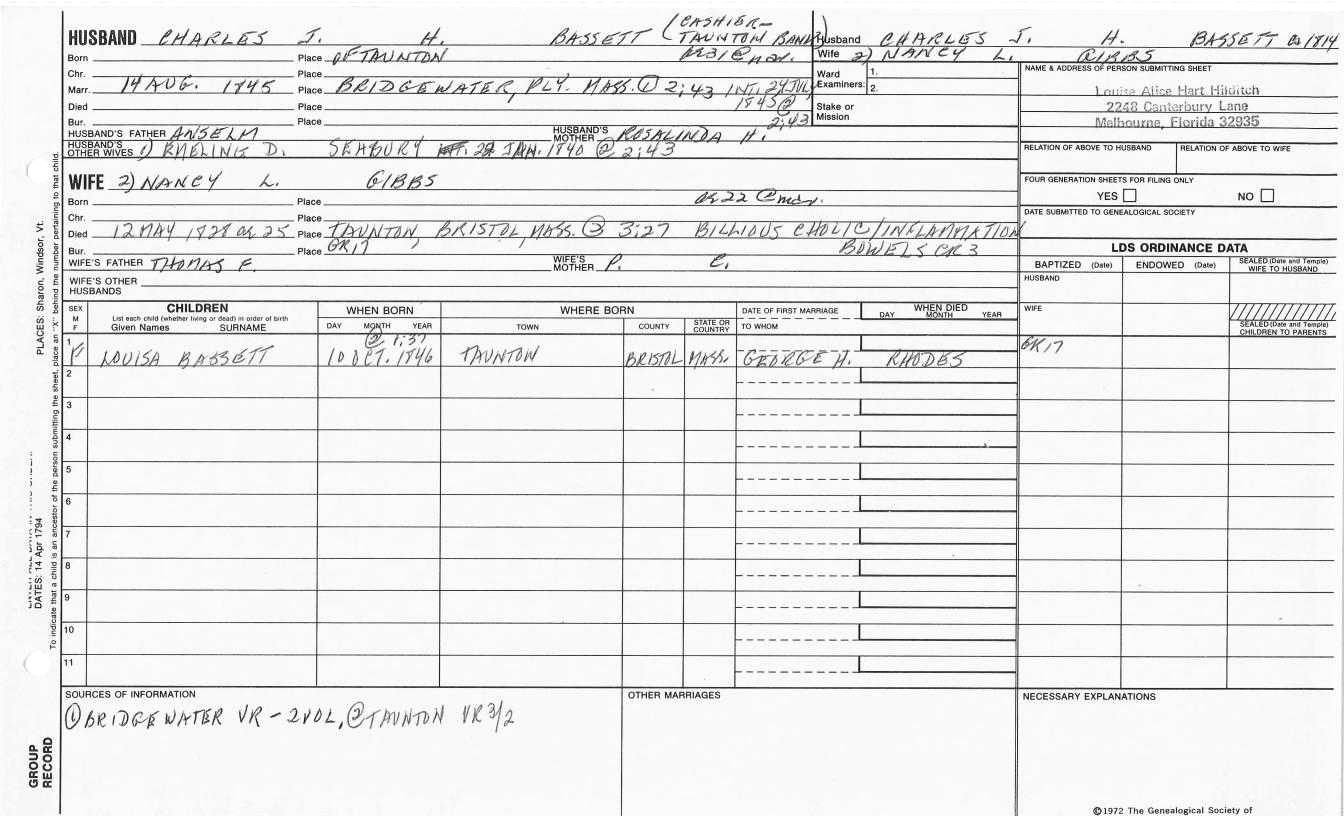 (CASHIER-
HUSBAND CHARLES J. H. BASSETT TAUNTON BANK)
Born Place OF TAUNTON
Chr. Place
Marr. 14 AUG. 1845 Place BRIDGEWATER, PLY. MASS. ① 2:43 INT. 24 JUL,
1845 ②
Died Place
2:43
Bur. Place
HUSBAND'S FATHER ANSELM HUSBAND'S MOTHER ROSALINDA H.
HUSBAND'S OTHER WIVES 1) EMELINE D. SEABURY JAN. 1840 @ 2:43
Husband CHARLES J. H. BASSETT Ca 1814
Wife 2) NANCY L. GIBBS
Ward Examiners: 1.
2.
Stake or Mission
NAME & ADDRESS OF PERSON SUBMITTING SHEET
Louise Alice Hart Hilditch
2248 Canterbury Lane
Melbourne, Florida 32935
RELATION OF ABOVE TO HUSBAND RELATION OF ABOVE TO WIFE
FOUR GENERATION SHEETS FOR FILING ONLY
YES NO
DATE SUBMITTED TO GENEALOGICAL SOCIETY
WIFE 2) NANCY L. GIBBS
Born Place
Chr. Place
Died 12 MAY 1828 Place TAUNTON, BRISTOL, MASS. ② 3:27 BILLIOUS CHOLIC/INFLAMMATION
Bur. Place GR17 BOWELS CR3
WIFE'S FATHER THOMAS F. WIFE'S MOTHER P. C.
WIFE'S OTHER HUSBANDS
LDS ORDINANCE DATA
BAPTIZED (Date) ENDOWED (Date) SEALED (Date and Temple) WIFE TO HUSBAND
HUSBAND
WIFE
SEALED (Date and Temple) CHILDREN TO PARENTS
SEX M F CHILDREN WHEN BORN WHERE BORN DATE OF FIRST MARRIAGE WHEN DIED
List each child (whether living or dead) in order of birth
Given Names SURNAME DAY MONTH YEAR TOWN COUNTY STATE OR COUNTRY TO WHOM DAY MONTH YEAR
② 1:37
1 F LOUISA BASSETT 10 OCT. 1846 TAUNTON BRISTOL MASS. GEORGE H. RHODES GR17
2
3
4
5
6
7
8
9
10
11
SOURCES OF INFORMATION
① BRIDGEWATER VR - 2 VOL, ② TAUNTON VR 3/2
OTHER MARRIAGES
NECESSARY EXPLANATIONS
©1972 The Genealogical Society of
PLACES: Sharon, Windsor, Vt.
DATES: 14 Apr 1794
To indicate that a child is an ancestor of the person submitting the sheet, place an "X" behind the number pertaining to that child.
GROUP RECORD